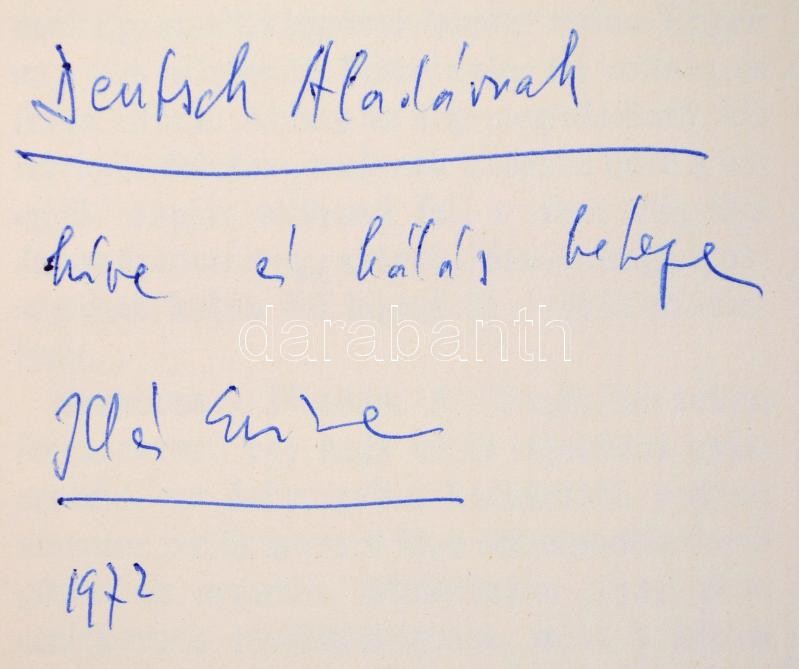 Deutsch Aladárnak
híve és hálás betege
darabanth
Illés Endre
1972